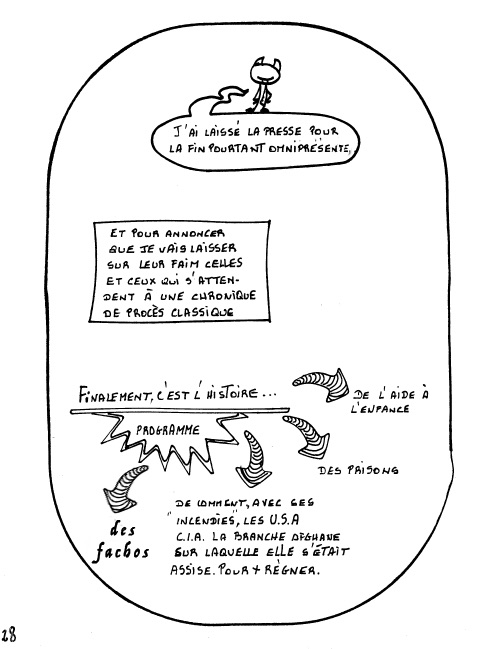 J'AI LAISSÉ LA PRESSE POUR
LA FIN POURTANT OMNIPRÉSENTE,
ET POUR ANNONCER
QUE JE VAIS LAISSER
SUR LEUR FAIM CELLES
ET CEUX QUI S'ATTEN-
DENT À UNE CHRONIQUE
DE PROCÈS CLASSIQUE
FINALEMENT, C'EST L'HISTOIRE...
DE L'AIDE À
L'ENFANCE
PROGRAMME
DES PRISONS
DE COMMENT, AVEC SES
"INCENDIES", LES U.S.A
C.I.A. LA BRANCHE AFGHANE
SUR LAQUELLE ELLE S'ÉTAIT
ASSISE. POUR + RÈGNER.
des
fachos
28